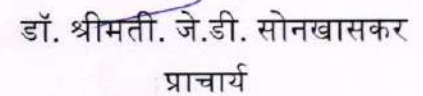 डॉ. श्रीमती. जे.डी. सोनखासकर
प्राचार्य